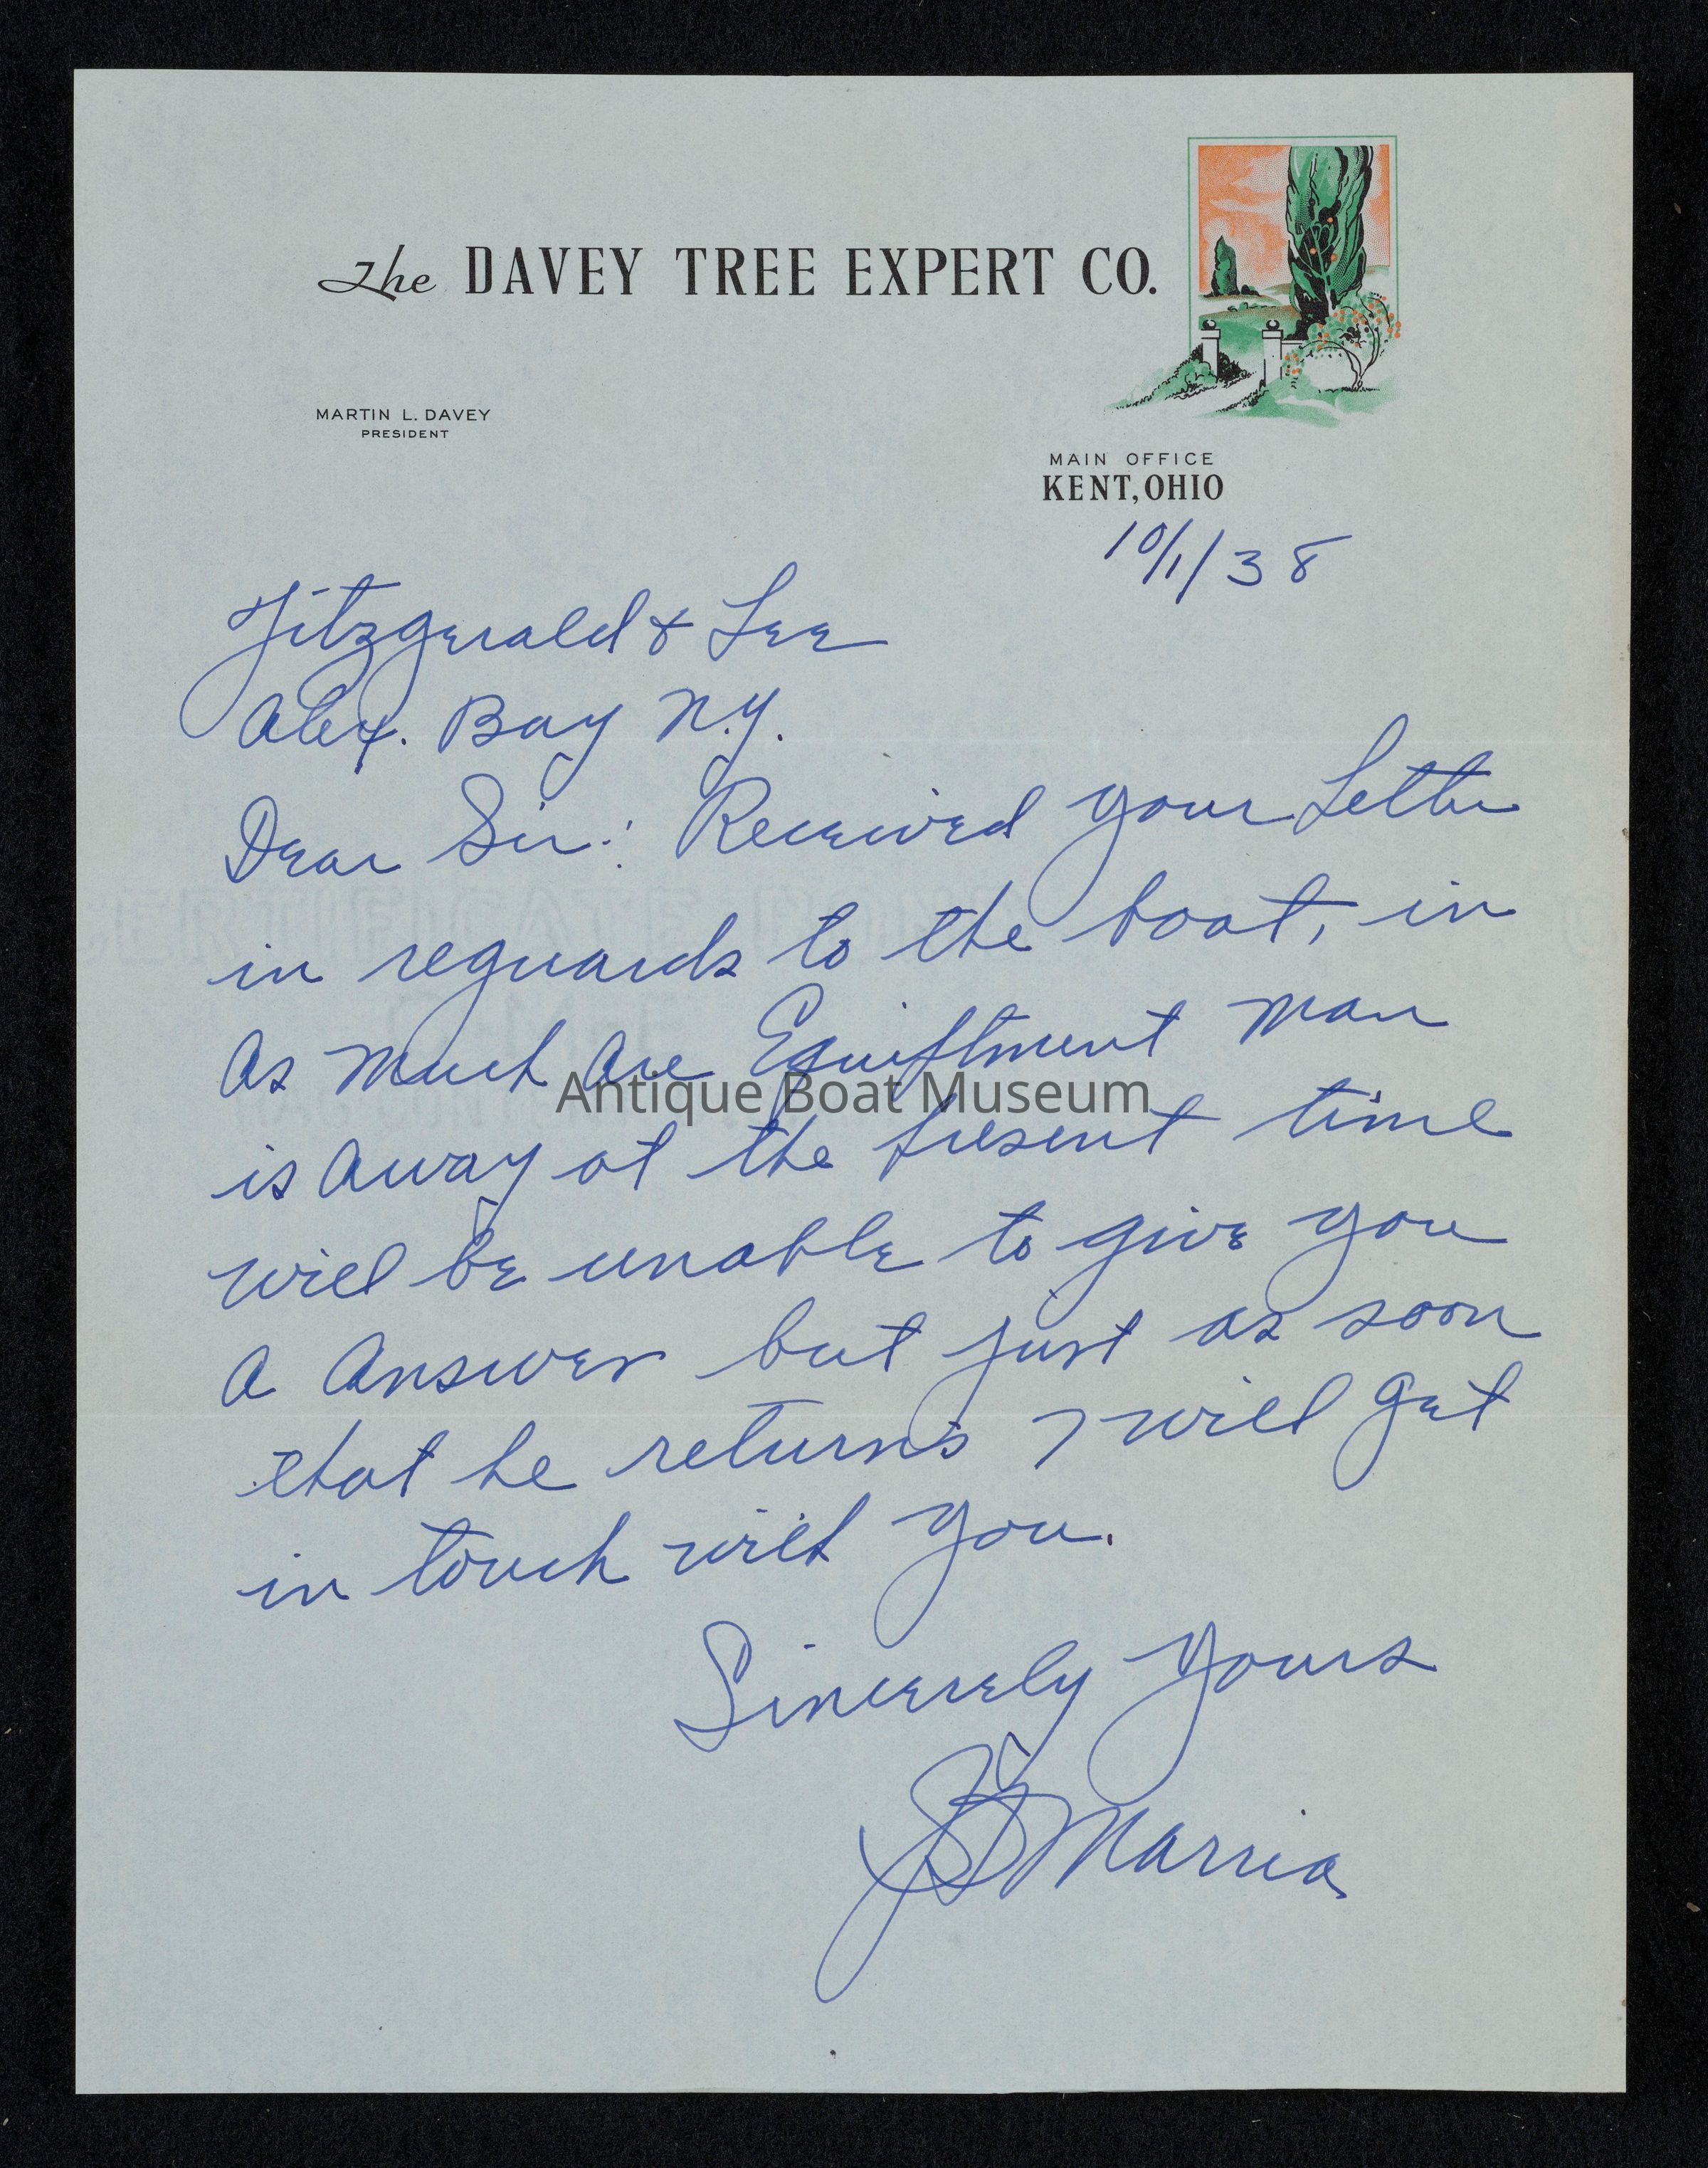 The DAVEY TREE EXPERT CO.
MARTIN L. DAVEY
PRESIDENT
MAIN OFFICE
KENT, OHIO
10/1/38
Fitzgerald & Lee
Alex. Bay N.Y.
Dear Sir: Received your Letter
in reguards to the boat, in
As Much Are Equiptment Man
is Away at the present time
will be unable to give you
A Answer but just as soon
that he returns I will get
in touch with you.
Sincerely Yours
Antique Boat Museum